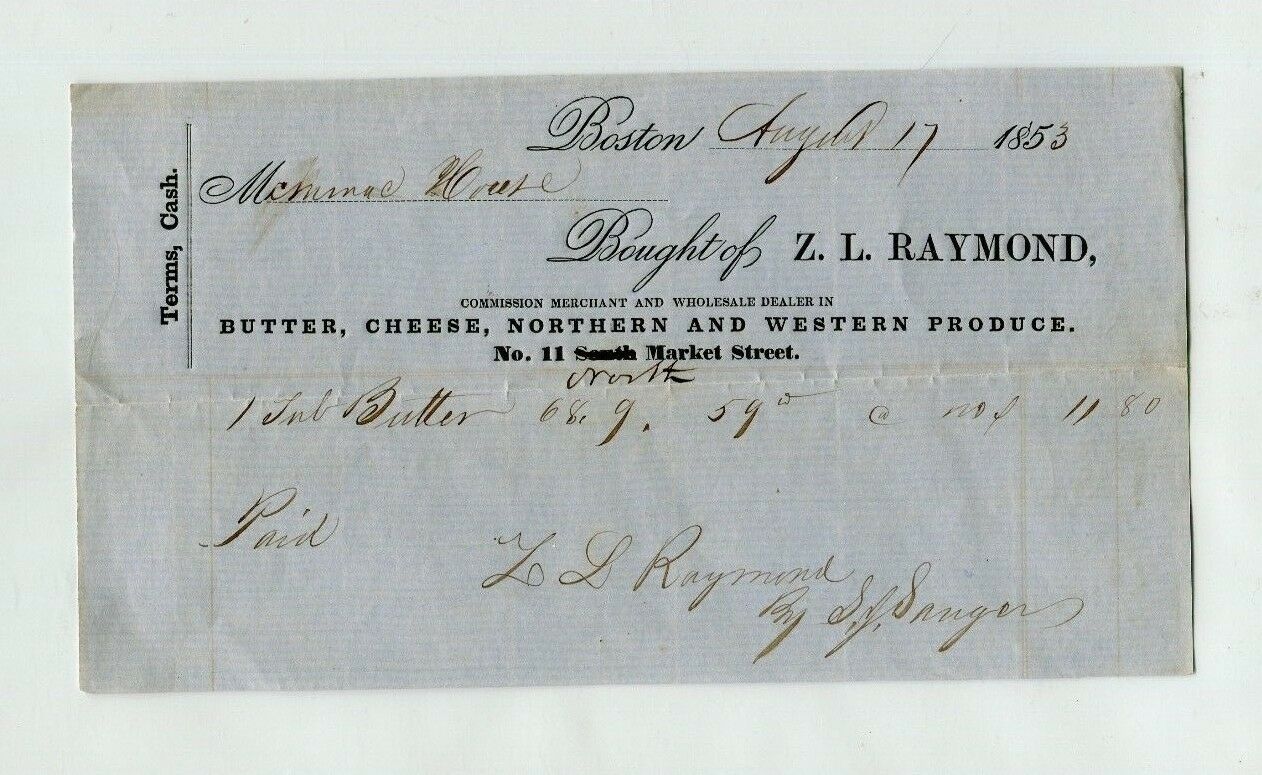 Boston August 17 1853
Terms, Cash.
Merrimac House
Bought of Z. L. RAYMOND,
COMMISSION MERCHANT AND WHOLESALE DEALER IN
BUTTER, CHEESE, NORTHERN AND WESTERN PRODUCE.
No. 11 South Market Street.
North
1 Tub Butter 68. 9. 59 @ 11 80
Paid
Z L Raymond
By Sanger